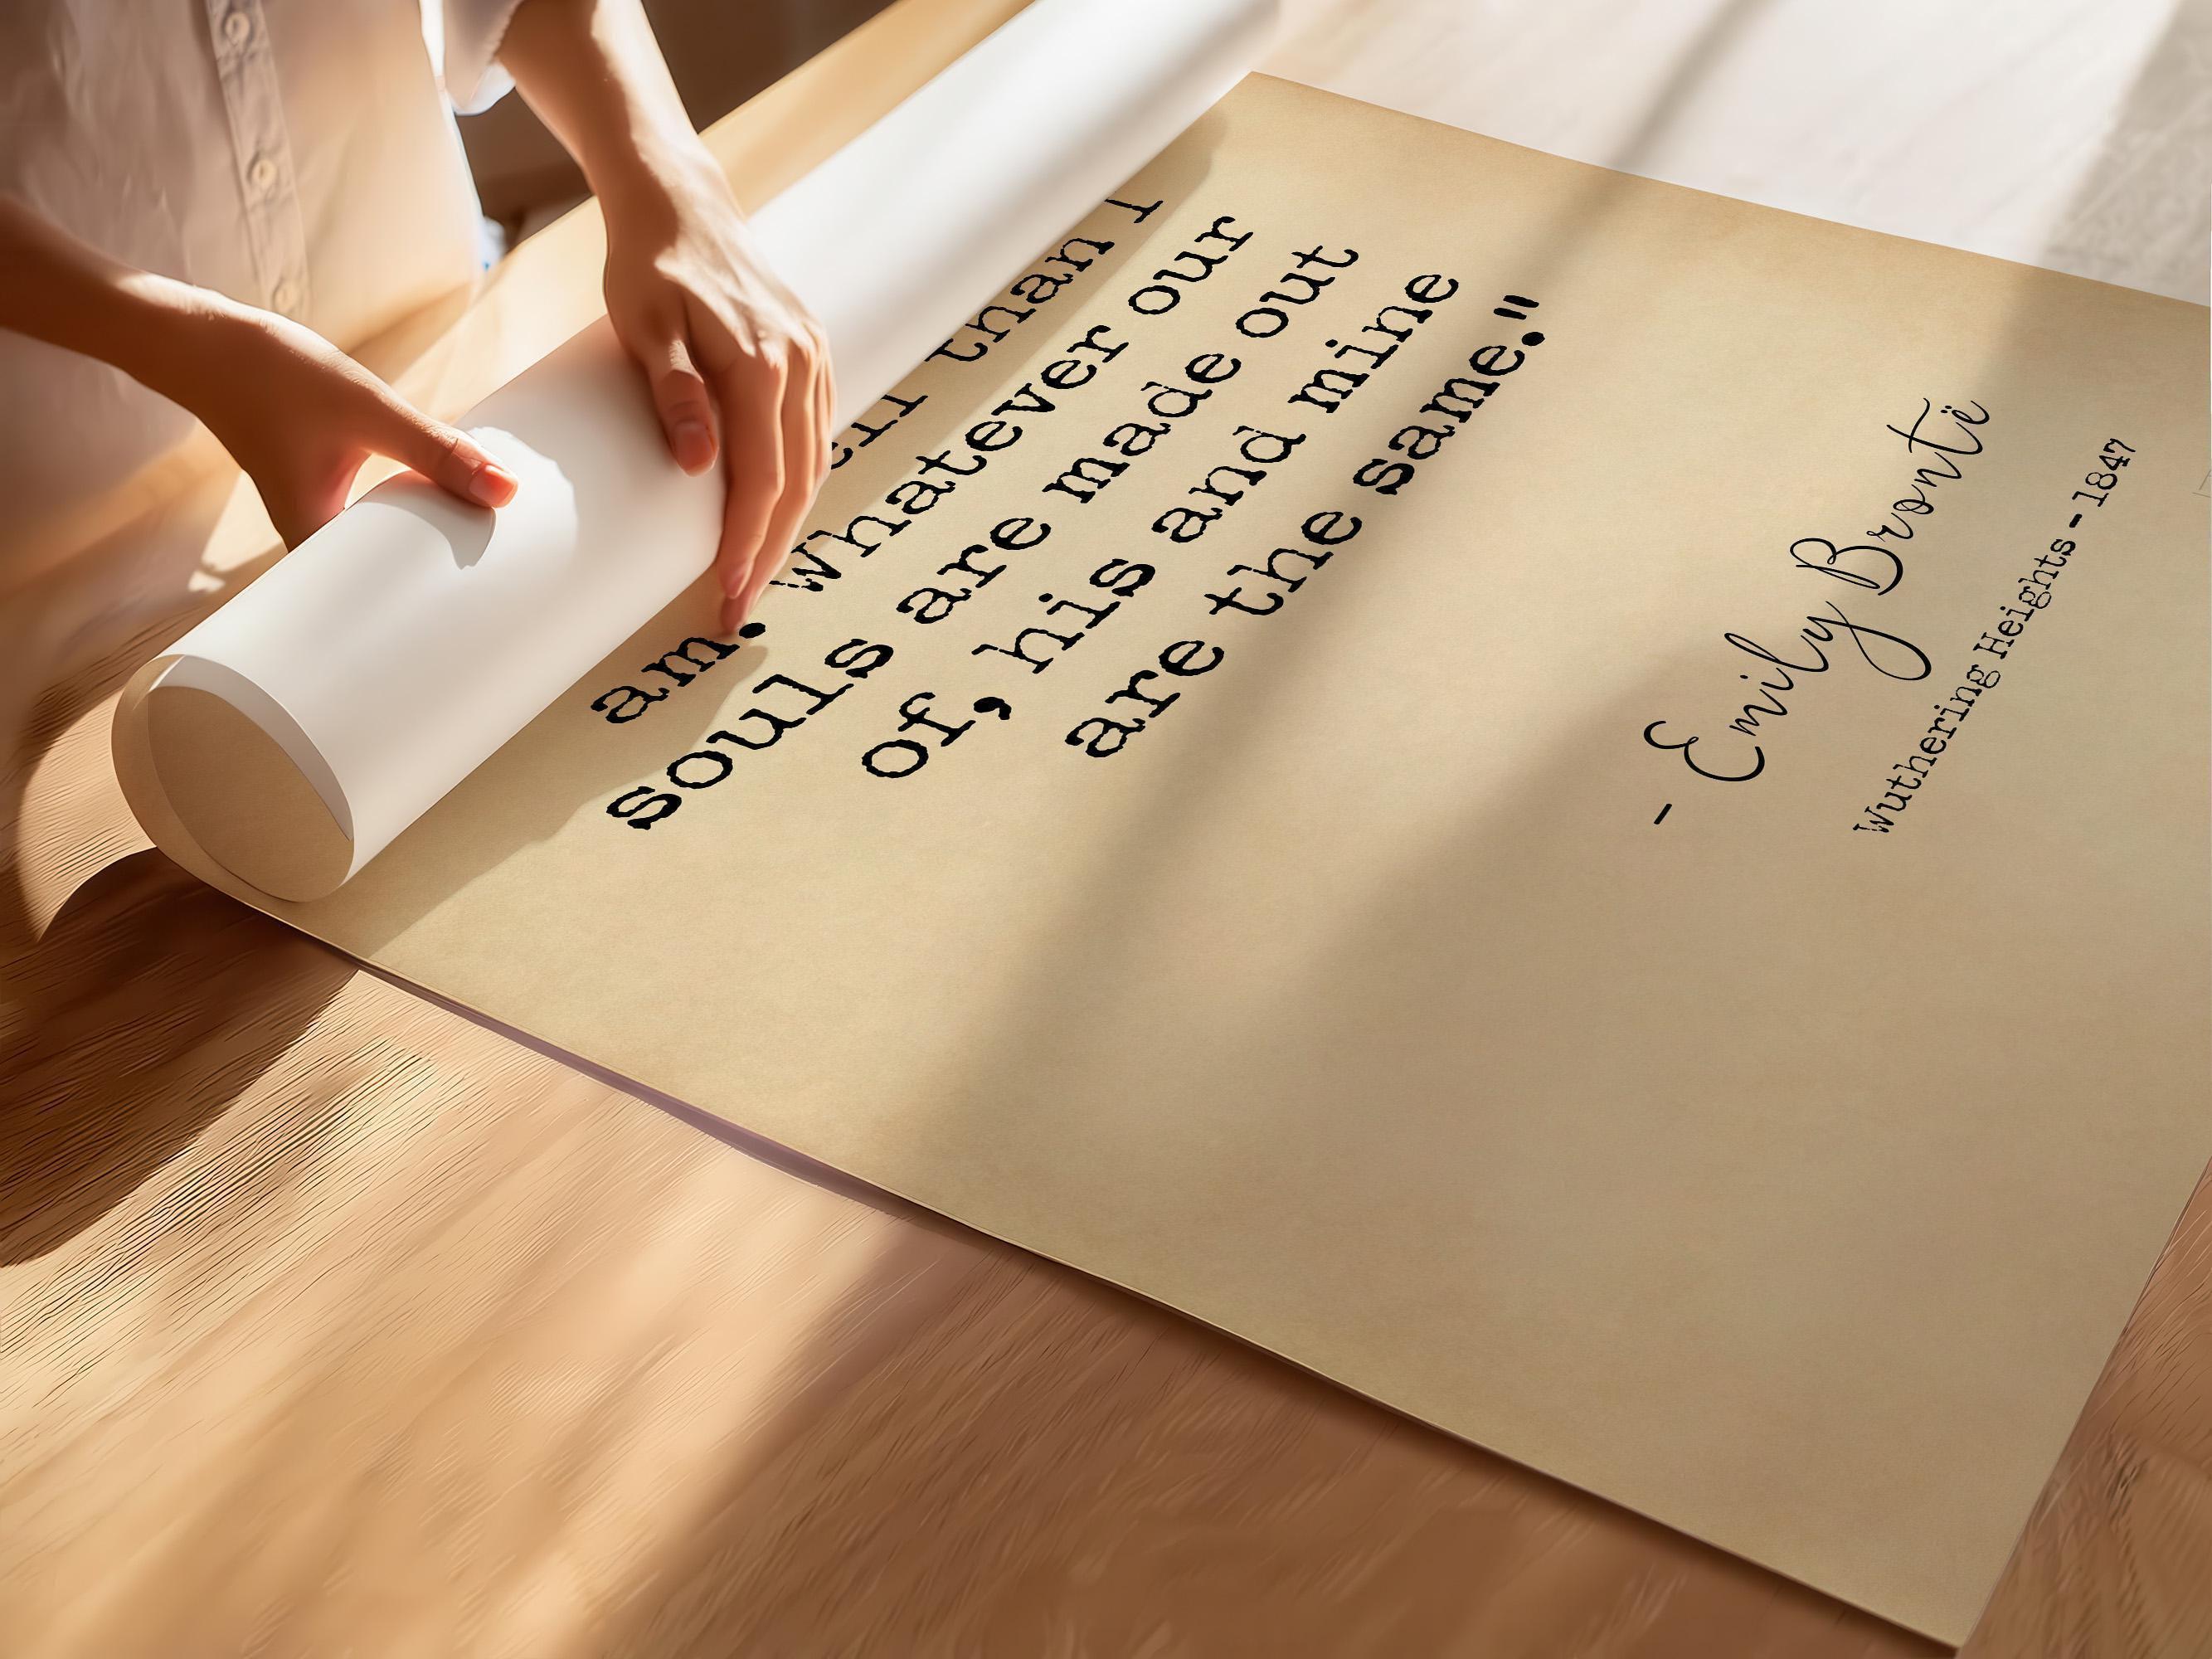 than I
am. Whatever our
souls are made out
of, his and mine
are the same."
- Emily Brontë
Wuthering Heights - 1847